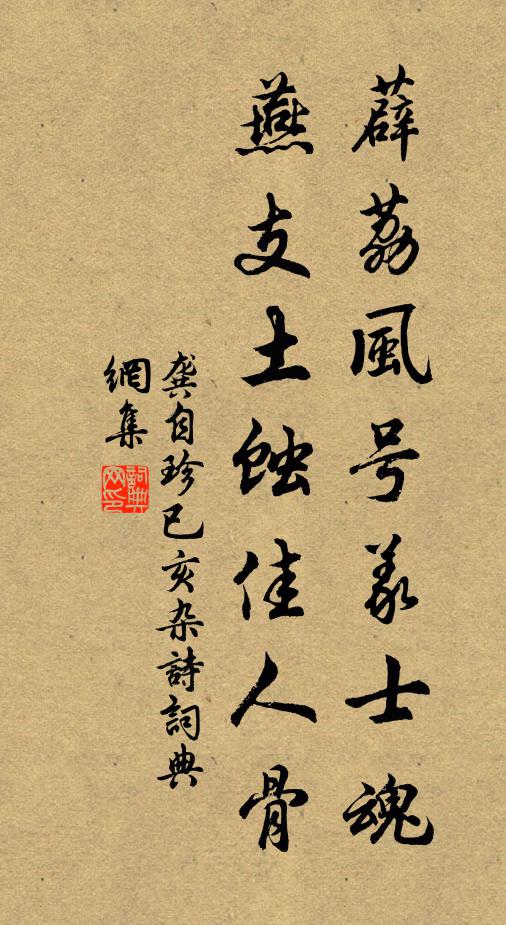 薜荔風号義士魂
燕支土蝕佳人骨
龔自珍已亥杂詩詞典
網集
詞典
网印